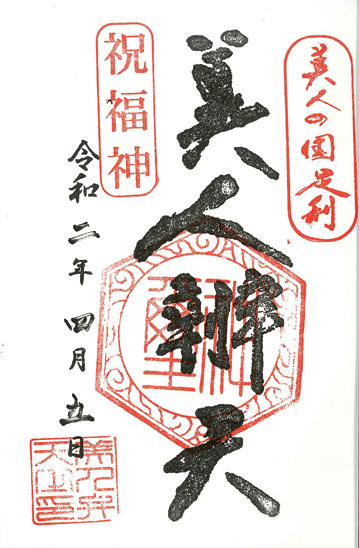 美人の国足利
美人辨天
祝福神
令和二年四月五日